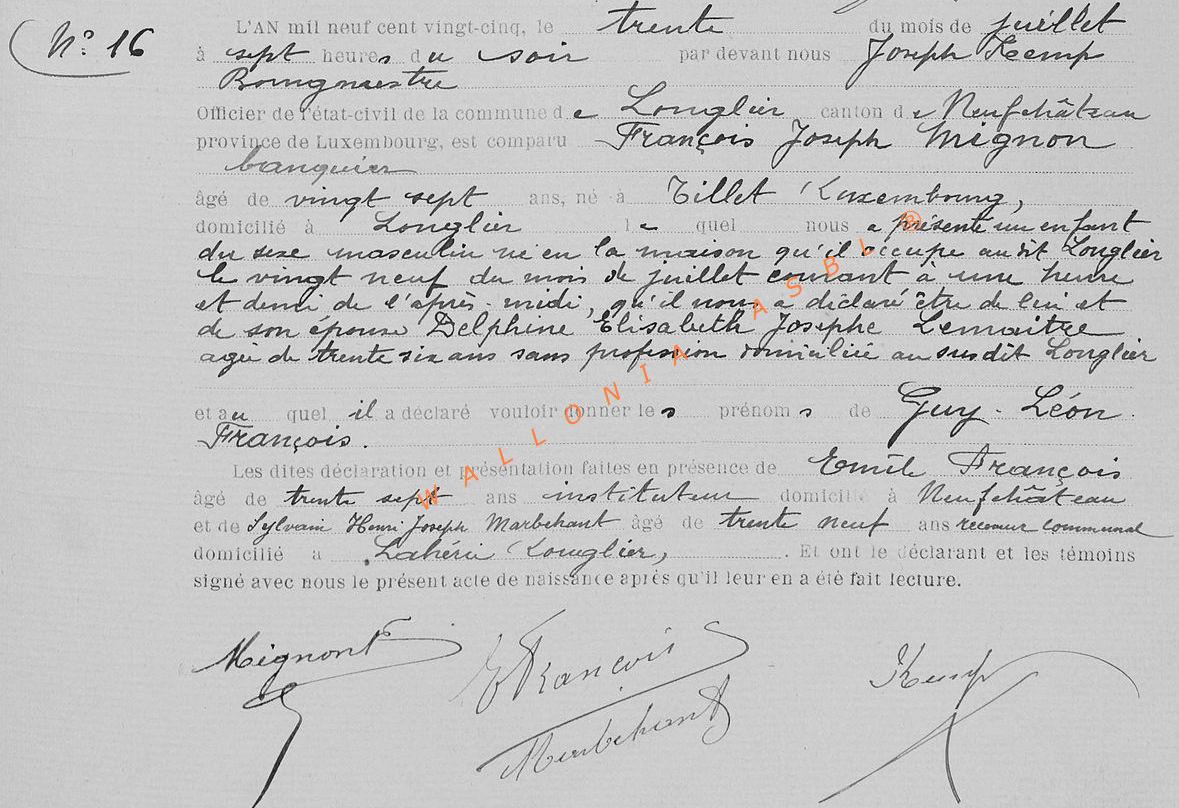 N° 16
L'AN mil neuf cent vingt-cinq, le trente du mois de juillet
à sept heures du soir par devant nous Joseph Kemp
Bourgmestre
Officier de l'état-civil de la commune de Longlier canton de Neufchâteau
province de Luxembourg, est comparu François Joseph Mignon
banquier
âgé de vingt sept ans, né à Tillet (Luxembourg,
domicilié à Longlier le quel nous a présenté un enfant
du sexe masculin né en la maison qu'il occupe audit Longlier
le vingt neuf du mois de juillet courant à une heure
et demi de l'après-midi, qu'il nous a déclaré être de lui et
de son épouse Delphine Elisabeth Josephe Lemaitre
agée de trente six ans sans profession domiciliée au susdit Longlier
et au quel il a déclaré vouloir donner les prénoms de Guy-Léon
François.
Les dites déclaration et présentation faites en présence de Emile François
âgé de trente sept ans instituteur domicilié à Neufchâteau
et de Sylvain Henri Joseph Marbehant âgé de trente neuf ans receveur communal
domicilié a Lahérie (Longlier, . Et ont le déclarant et les témoins
signé avec nous le présent acte de naissance après qu'il leur en a été fait lecture.
Mignon E François Kemp
Marbehant
WALLONIA ASBL ®